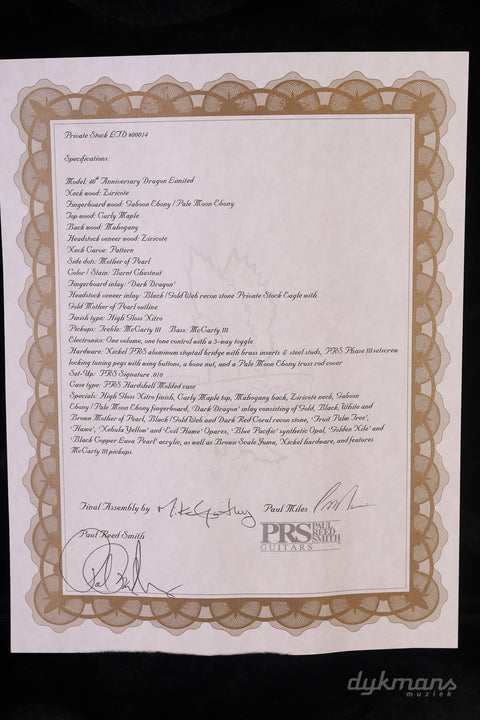 Private Stock LTD #00014
Specifications:
Model: 40th Anniversary Dragon Limited
Neck wood: Ziricote
Fingerboard wood: Gaboon Ebony / Pale Moon Ebony
Top wood: Curly Maple
Back wood: Mahogany
Headstock veneer wood: Ziricote
Neck Carve: Pattern
Side dots: Mother of Pearl
Color / Stain: Burnt Chestnut
Fingerboard inlay: 'Dark Dragon'
Headstock veneer inlay: Black / Gold Web recon stone Private Stock Eagle with
Gold Mother of Pearl outline
Finish type: High Gloss Nitro
Pickups: Treble: McCarty III Bass: McCarty III
Electronics: One volume, one tone control with a 3-way toggle
Hardware: Nickel PRS aluminum stoptail bridge with brass inserts & steel studs, PRS Phase III setscrew
locking tuning pegs with wing buttons, a bone nut, and a Pale Moon Ebony truss rod cover
Set-Up: PRS Signature .010
Case type: PRS Hardshell Molded case
Specials: High Gloss Nitro finish, Curly Maple top, Mahogany back, Ziricote neck, Gaboon
Ebony / Pale Moon Ebony fingerboard, 'Dark Dragon' inlay consisting of Gold, Black, White and
Brown Mother of Pearl, Black / Gold Web and Dark Red Coral recon stone, 'Fruit Palm Tree',
'Flame', 'Nebula Yellow' and 'Evil Flame' Oparex, 'Blue Pacific' synthetic Opal, 'Golden Nile' and
'Black Copper Lava Pearl' acrylic, as well as Brown Scale Yuma, Nickel hardware, and features
McCarty III pickups.
Final Assembly by
Paul Miles
Paul Reed Smith
PRS PAUL REED SMITH
GUITARS
dykmans
muziek